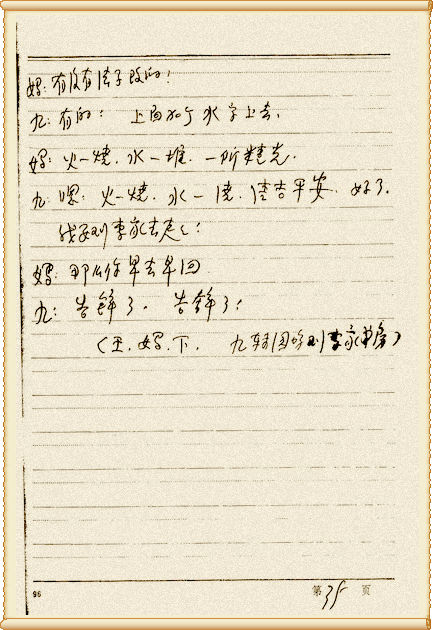 妈:有没有法子改的!
九:有的:上面加个水字上去.
妈:火一烧.水一堆.一所精光.
九:嘿.火一烧.水一浇.吉平安.好了.
我要到李家去走走:
妈:那么你早去早回
九:告辞了.告辞了:
(王.妈.下.九转圆场到李家书房)
96 第35页